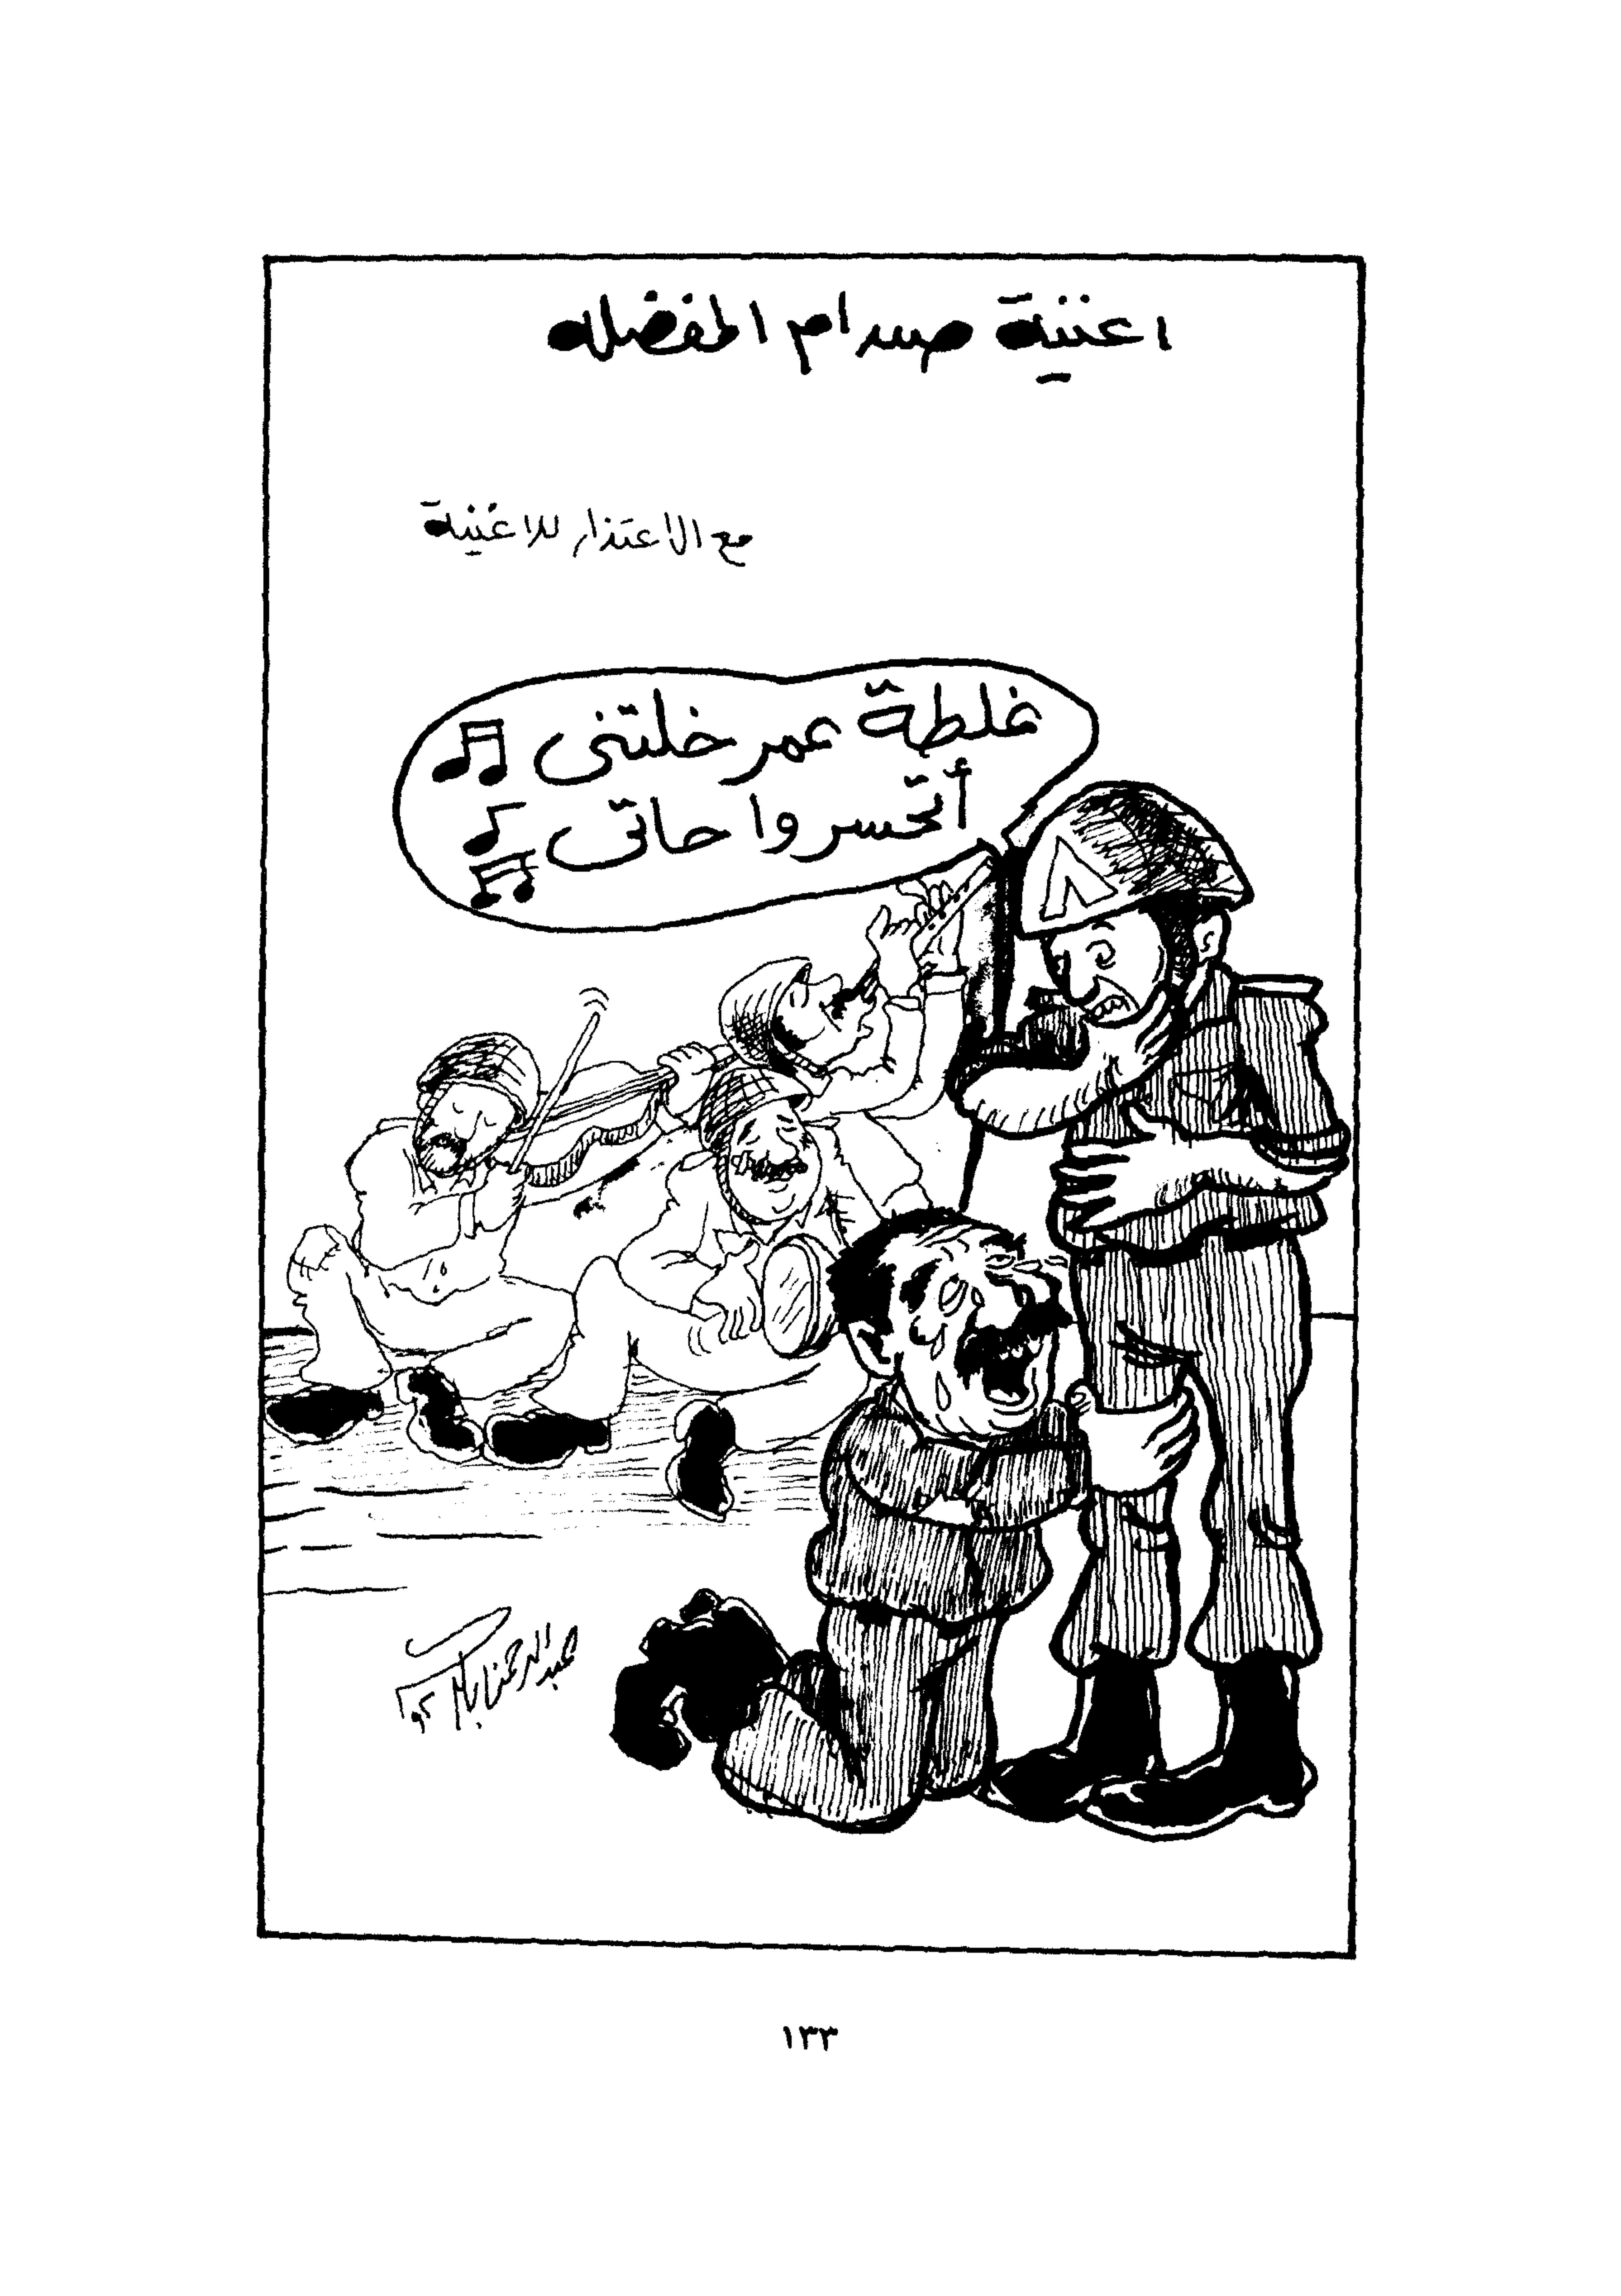 اغنية صدام المفضله
مع الاعتذار للاغنية
غلطة عمر خلتنى
أتحسر وا حاتى
٨
عبدالرحمن
١٣٣